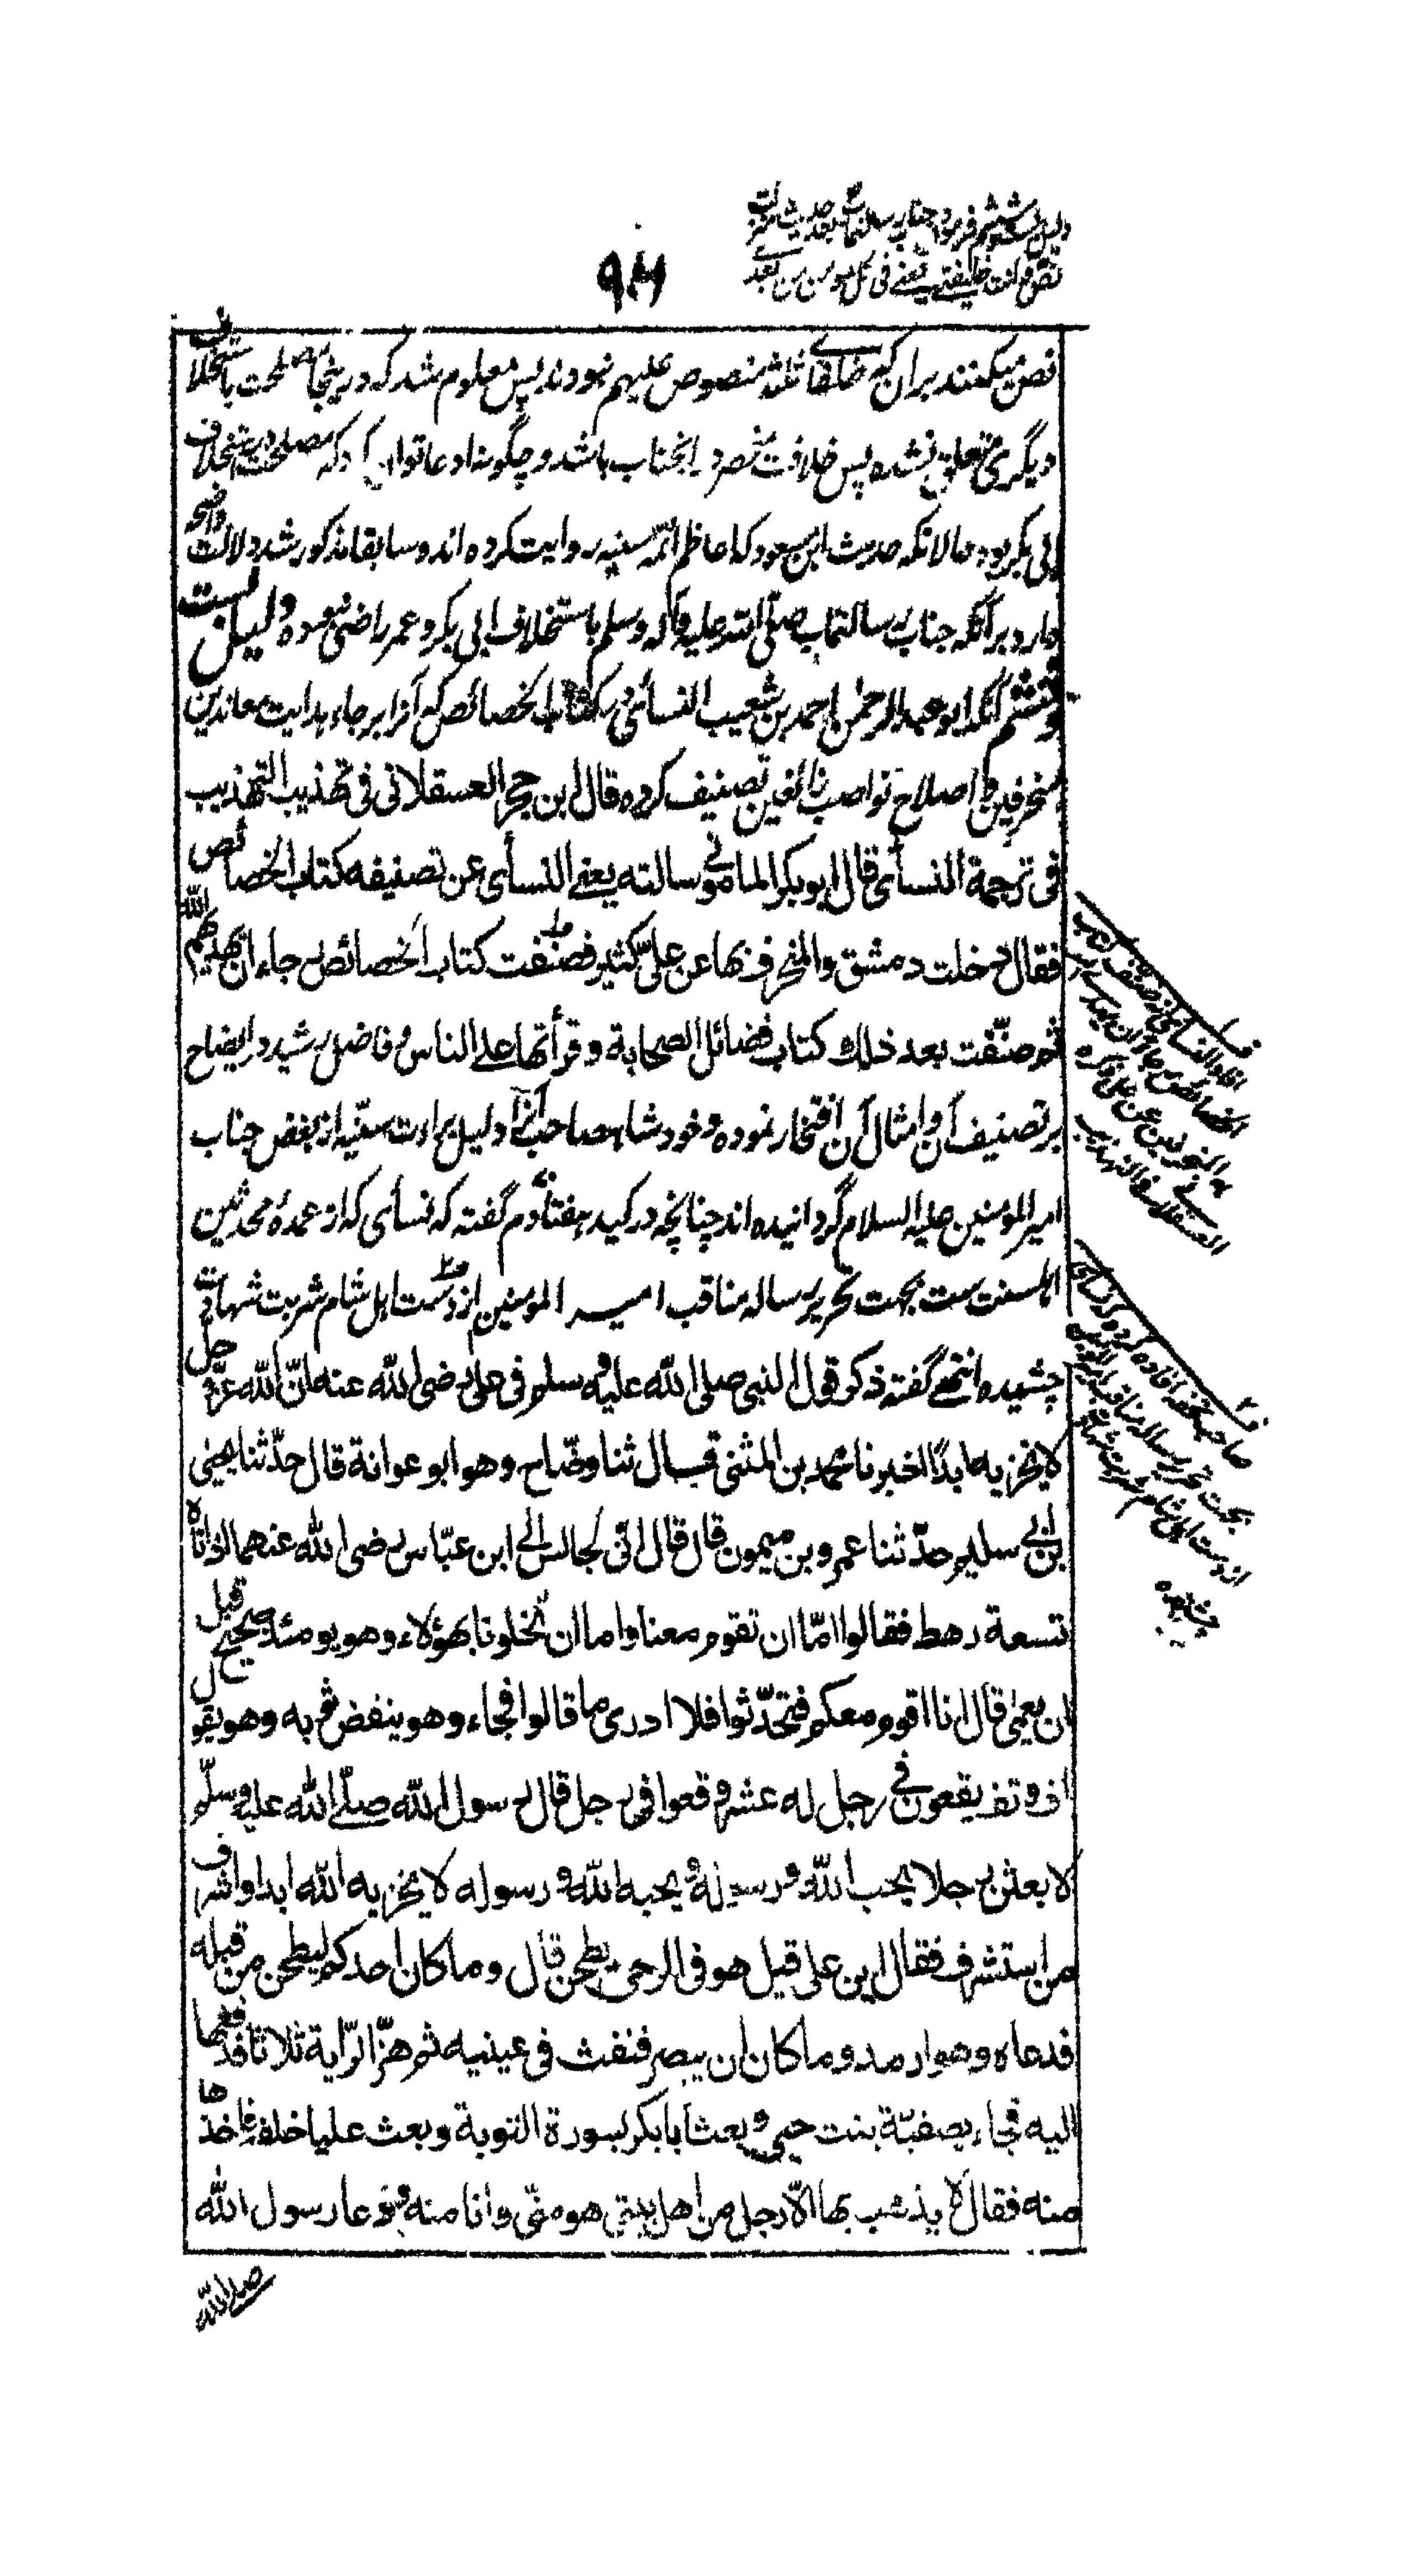 دلیل بست و ششم فرمودن جناب رسالتمآب بعد حدیث منزلت
نص و انت خلیفتی یعنی فی کل مومن من بعدی
نص نمیکنند بران که خلفای ثلثه منصوص علیهم نبودند پس معلوم شد که درینجا مصلحت باستخلاف
دیگری متعلق نشده پس خلافت منحصر در انجناب باشد و چگونه ادعا توان کرد که مصلحت در استخلاف
ابی بکر بوده حالانکه حدیث ابن مسعود که اعاظم ائمه سنیه روایت کرده اند و سابقا مذکور شد دلالت واضحه
دارد بر آنکه جناب رسالتماب صلی الله علیه وآله وسلم باستخلاف ابی بکر و عمر راضی نبوده دلیل بست
و ششم آنکه ابو عبد الرحمن احمد بن شعیب النسائی در کتاب الخصائص که آنرا برجاء هدایت معاندین
منحرفین و اصلاح نواصب زائغین تصنیف کرده قال ابن حجر العسقلانی فی تهذیب التهذیب
فی ترجمة النسأی قال ابو بکر المامونی سالته یعنی النسأی عن تصنیفه کتاب الخصائص
فقال دخلت دمشق والمنحرف بها عن علیّ کثیر فصنّفت کتاب الخصائص رجاء ان یهدیهم الله
ثم صنّفت بعد ذلك کتاب فضائل الصحابة و قرأتها علی الناس و فاضل رشید در ایضاح
بر تصنیف آن و امثال آن افتخار نموده و خود شاهصاحب آنرا دلیل براءت سنّیه از بغض جناب
امیر المومنین علیه السلام گردانیده اند چنانچه در کید هفتادم گفته که نسأی که از عمدهٔ محدثین
اهلسنت ست بجهت تحریر رساله مناقب امیر المومنین از دست اهل شام شربت شهادت
چشیده انتهی گفته ذکر قول النبی صلی الله علیه وسلم فی علی رضی الله عنه انّ الله عزّ و جل
لا یخزیه ابدًا اخبرنا محمد بن المثنی قال ثنا وضّاح وهو ابو عوانة قال حدّثنا یحیی
بن ابی سلیم حدّثنا عمرو بن میمون قال قال انّی لجالس الی ابن عبّاس رضی الله عنهما اذ اتاه
تسعة رهط فقالوا امّا ان تقوم معنا واما ان تخلونا بهؤلاء وهو یومئذ صحیح قبل
ان یعمی قال انا اقوم معکم فتحدّثوا فلا ادری ما قالوا فجاء وهو ینفض ثوبه وهو یقول
اف وتف یقعون فی رجل له عشر وقعوا فی رجل قال رسول الله صلّی الله علیه وسلّم
لابعثن رجلا یحب الله ورسوله ویحبه الله ورسوله لا یخزیه الله ابدا واشرف
من استشرف فقال این علی قیل هو فی الرحی یطحن قال وما کان احدکم لیطحن من قبله
فدعاه وهو ارمد وما کان ان یبصر فنفث فی عینیه ثم هزّ الرّایة ثلاثا فدفعها
الیه فجاء بصفیّة بنت حیی وبعث ابابکر بسورة التوبة وبعث علیا خلفه فاخذها
منه فقال لا یذهب بها الّا رجل من اهل بیتی هو منّی وانا منه ودعا رسول الله
صلی الله